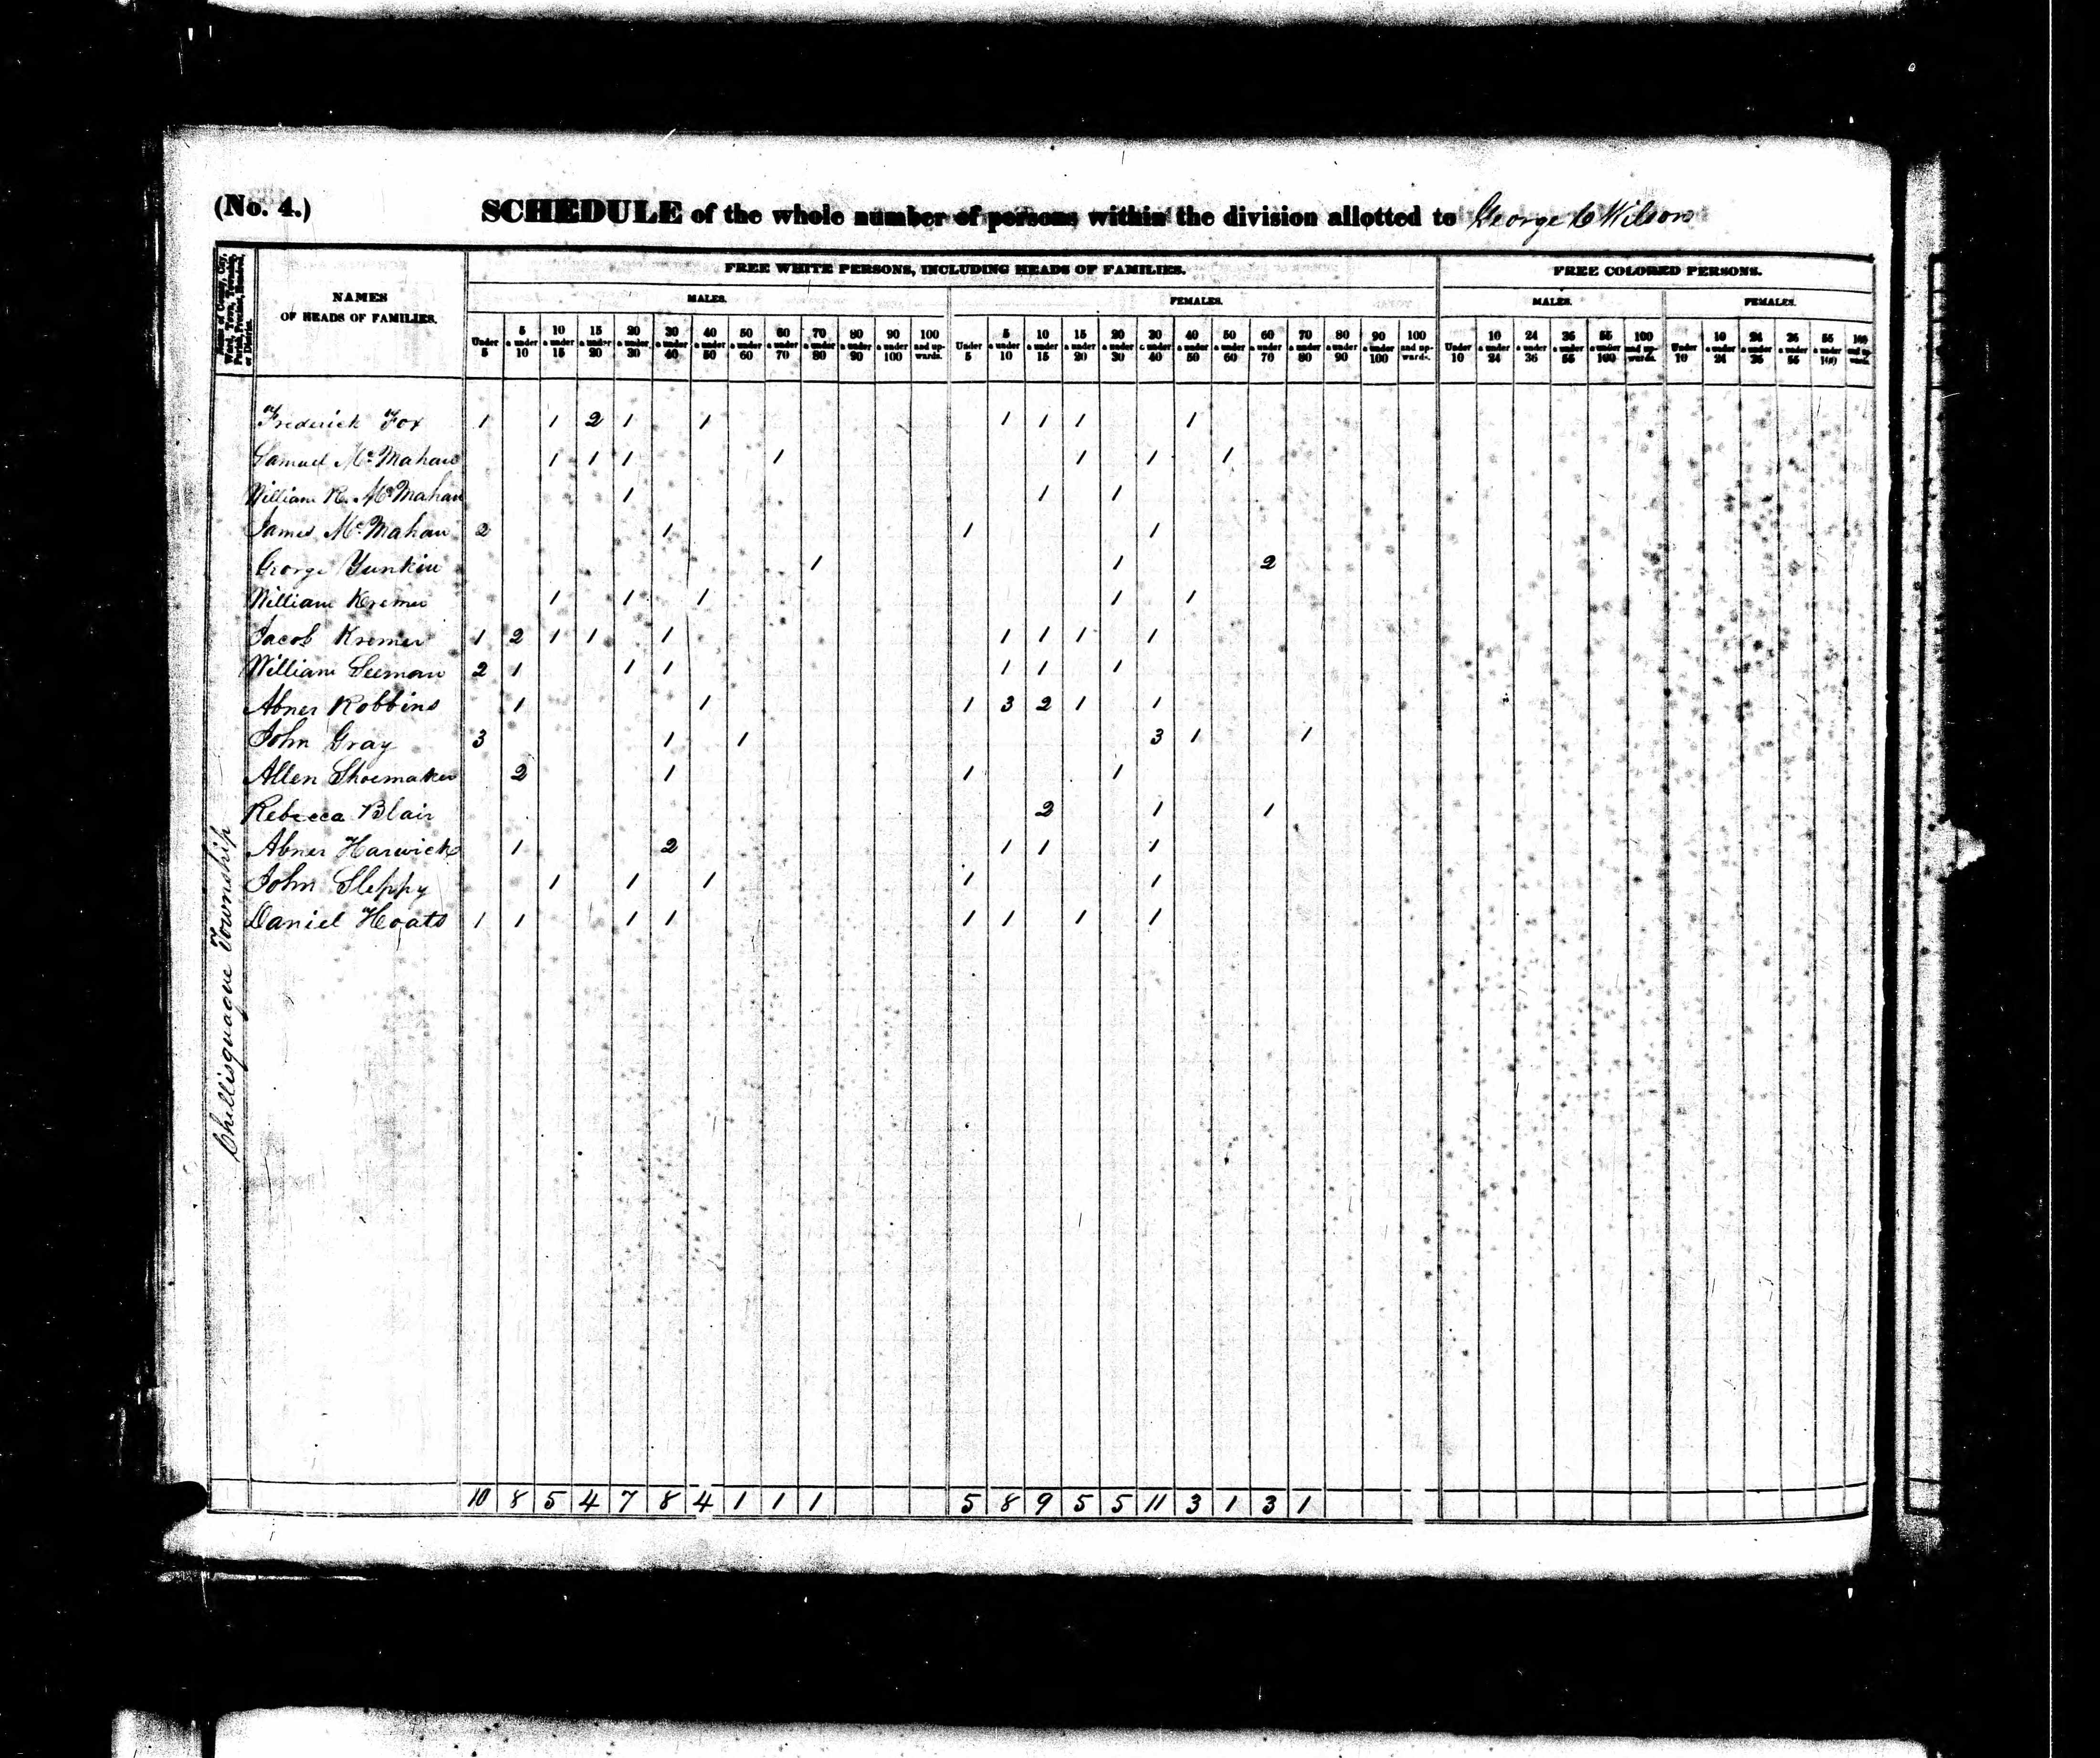 (No. 4.) SCHEDULE of the whole number of persons within the division allotted to George C Wilson
FREE WHITE PERSONS, INCLUDING HEADS OF FAMILIES. FREE COLORED PERSONS.
NAMES OF HEADS OF FAMILIES. MALES. FEMALES. MALES. FEMALES.
Under 5 5 & under 10 10 & under 15 15 & under 20 20 & under 30 30 & under 40 40 & under 50 50 & under 60 60 & under 70 70 & under 80 80 & under 90 90 & under 100 100 and upwards. Under 5 5 & under 10 10 & under 15 15 & under 20 20 & under 30 30 & under 40 40 & under 50 50 & under 60 60 & under 70 70 & under 80 80 & under 90 90 & under 100 100 and upwards. Under 10 10 & under 24 24 & under 36 36 & under 55 55 & under 100 100 and upwards. Under 10 10 & under 24 24 & under 36 36 & under 55 55 & under 100 100 and upwards.
Chillisquaque Township
Frederick Fox 1 1 2 1 1 1 1 1 1
Samuel McMahan 1 1 1 1 1 1 1
William R. McMahan 1 1 1
James McMahan 2 1 1 1
George Yunkin 1 1 2
William Kremer 1 1 1 1 1
Jacob Kremer 1 2 1 1 1 1 1 1 1
William Leeman 2 1 1 1 1 1 1
Abner Robbins 1 1 1 3 2 1 1
John Gray 3 1 1 3 1 1
Allen Shoemaker 2 1 1 1
Rebecca Blair 2 1 1
Abner Harwick 1 2 1 1 1
John Sleppy 1 1 1 1 1
Daniel Hoats 1 1 1 1 1 1 1 1
10 8 5 4 7 8 4 1 1 1 5 8 9 5 5 11 3 1 3 1